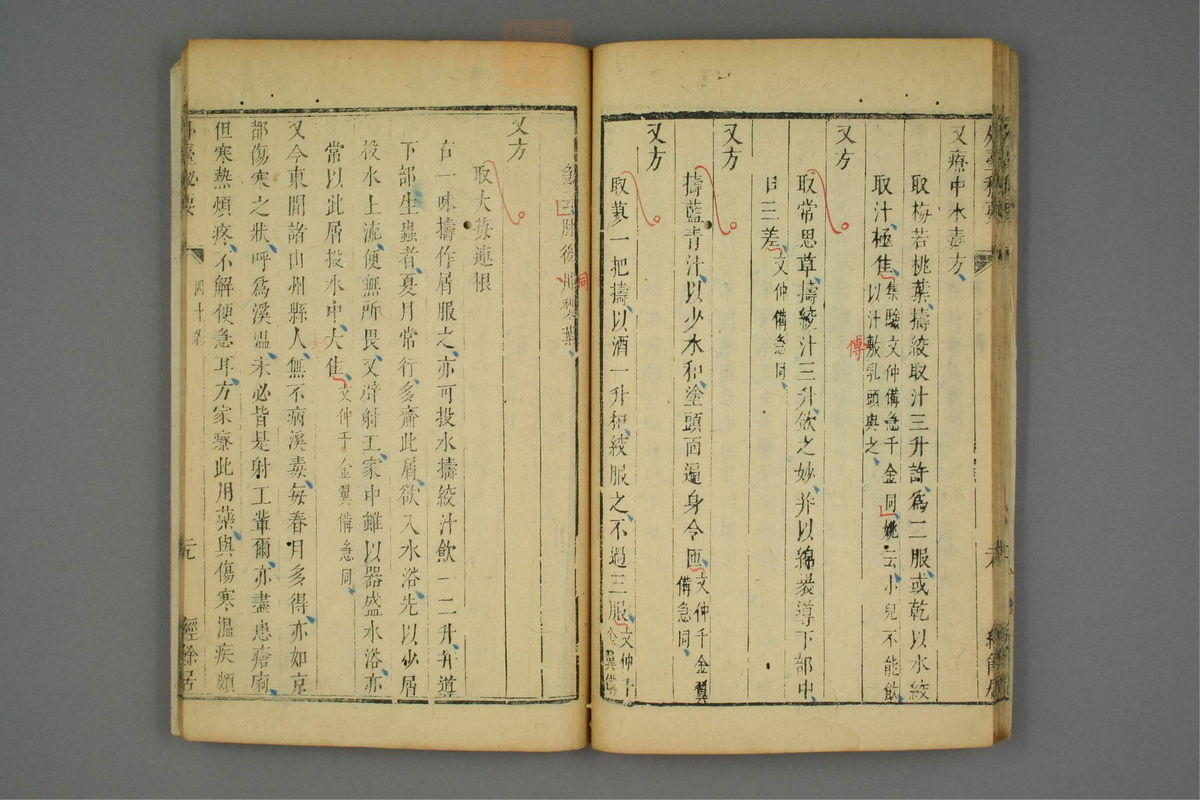 又療中水毒方
取梅若桃葉擣絞取汁三升許爲二服或乾以水絞
取汁極佳集驗文仲備急千金同姚云小兒不能飲
以汁敷乳頭與之
傅
又方
取常思草擣絞汁三升飲之妙并以綿裹導下部中
日三差文仲備急同
又方
擣藍青汁以少水和塗頭面遍身令匝文仲千金翼
備急同
又方
取蓼一把擣以酒一升和絞服之不過三服文仲千
金翼備
急云肘後用梨葉
同
又方
取大莓連根
右一味擣作屑服之亦可投水擣絞汁飲一二升并導
下部生蟲者夏月常行多齎此屑欲入水浴先以少屑
投水上流便無所畏又辟射工家中雖以器盛水浴亦
常以此屑投水中大佳文仲千金翼備急同
又今東間諸山州縣人無不病溪毒每春月多得亦如京
都傷寒之狀呼爲溪溫未必皆是射工輩爾亦盡患瘡痢
但寒熱煩疼不解便急耳方家療此用藥與傷寒溫疾頗
外臺秘要
四十卷
經餘居